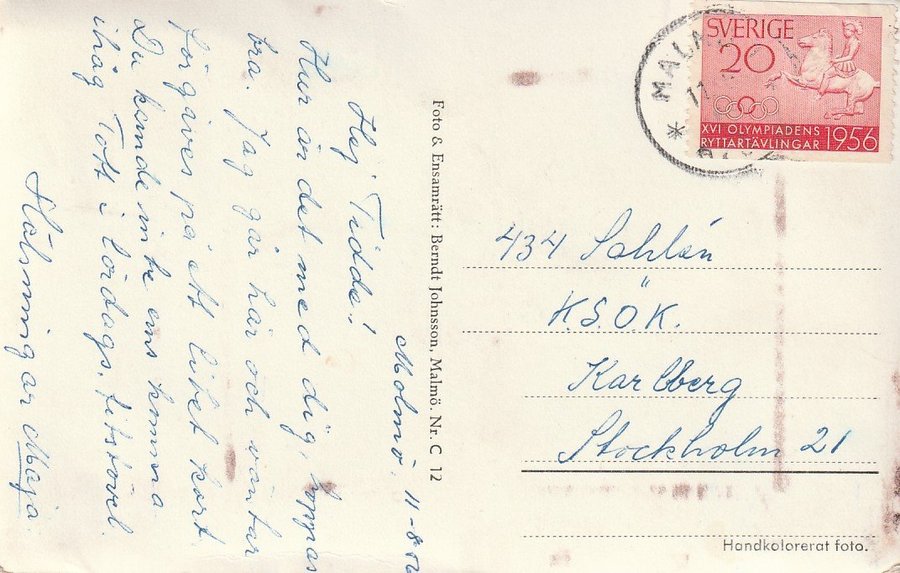 Malmö, 11-8-56
Hej Tidde!
Hur är det med dig, hoppas
bra. Jag går här och väntar
förgäves på ett litet kort.
Du kunde inte ens komma
ihåg Tott i lördags,
Hälsningar Maja.
Foto & Ensamrätt: Berndt Johnsson, Malmö. Nr. C 12
MALM
11
SVERIGE
20
XVI OLYMPIADENS
RYTTARTÄVLINGAR 1956
434 Sahlén
K.S.Ö.K.
Karlberg
Stockholm 21
Handkolorerat foto.